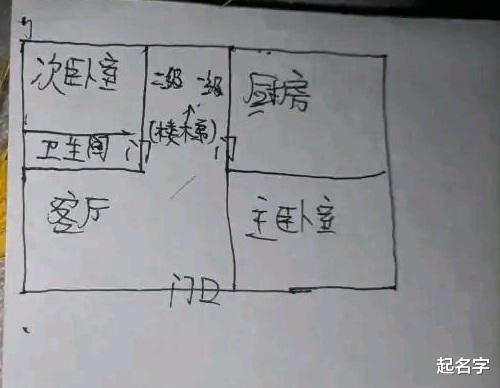 次卧室
二级 一级
厨房
(楼梯)
卫生间
门
门
客厅
主卧室
门口
起名字